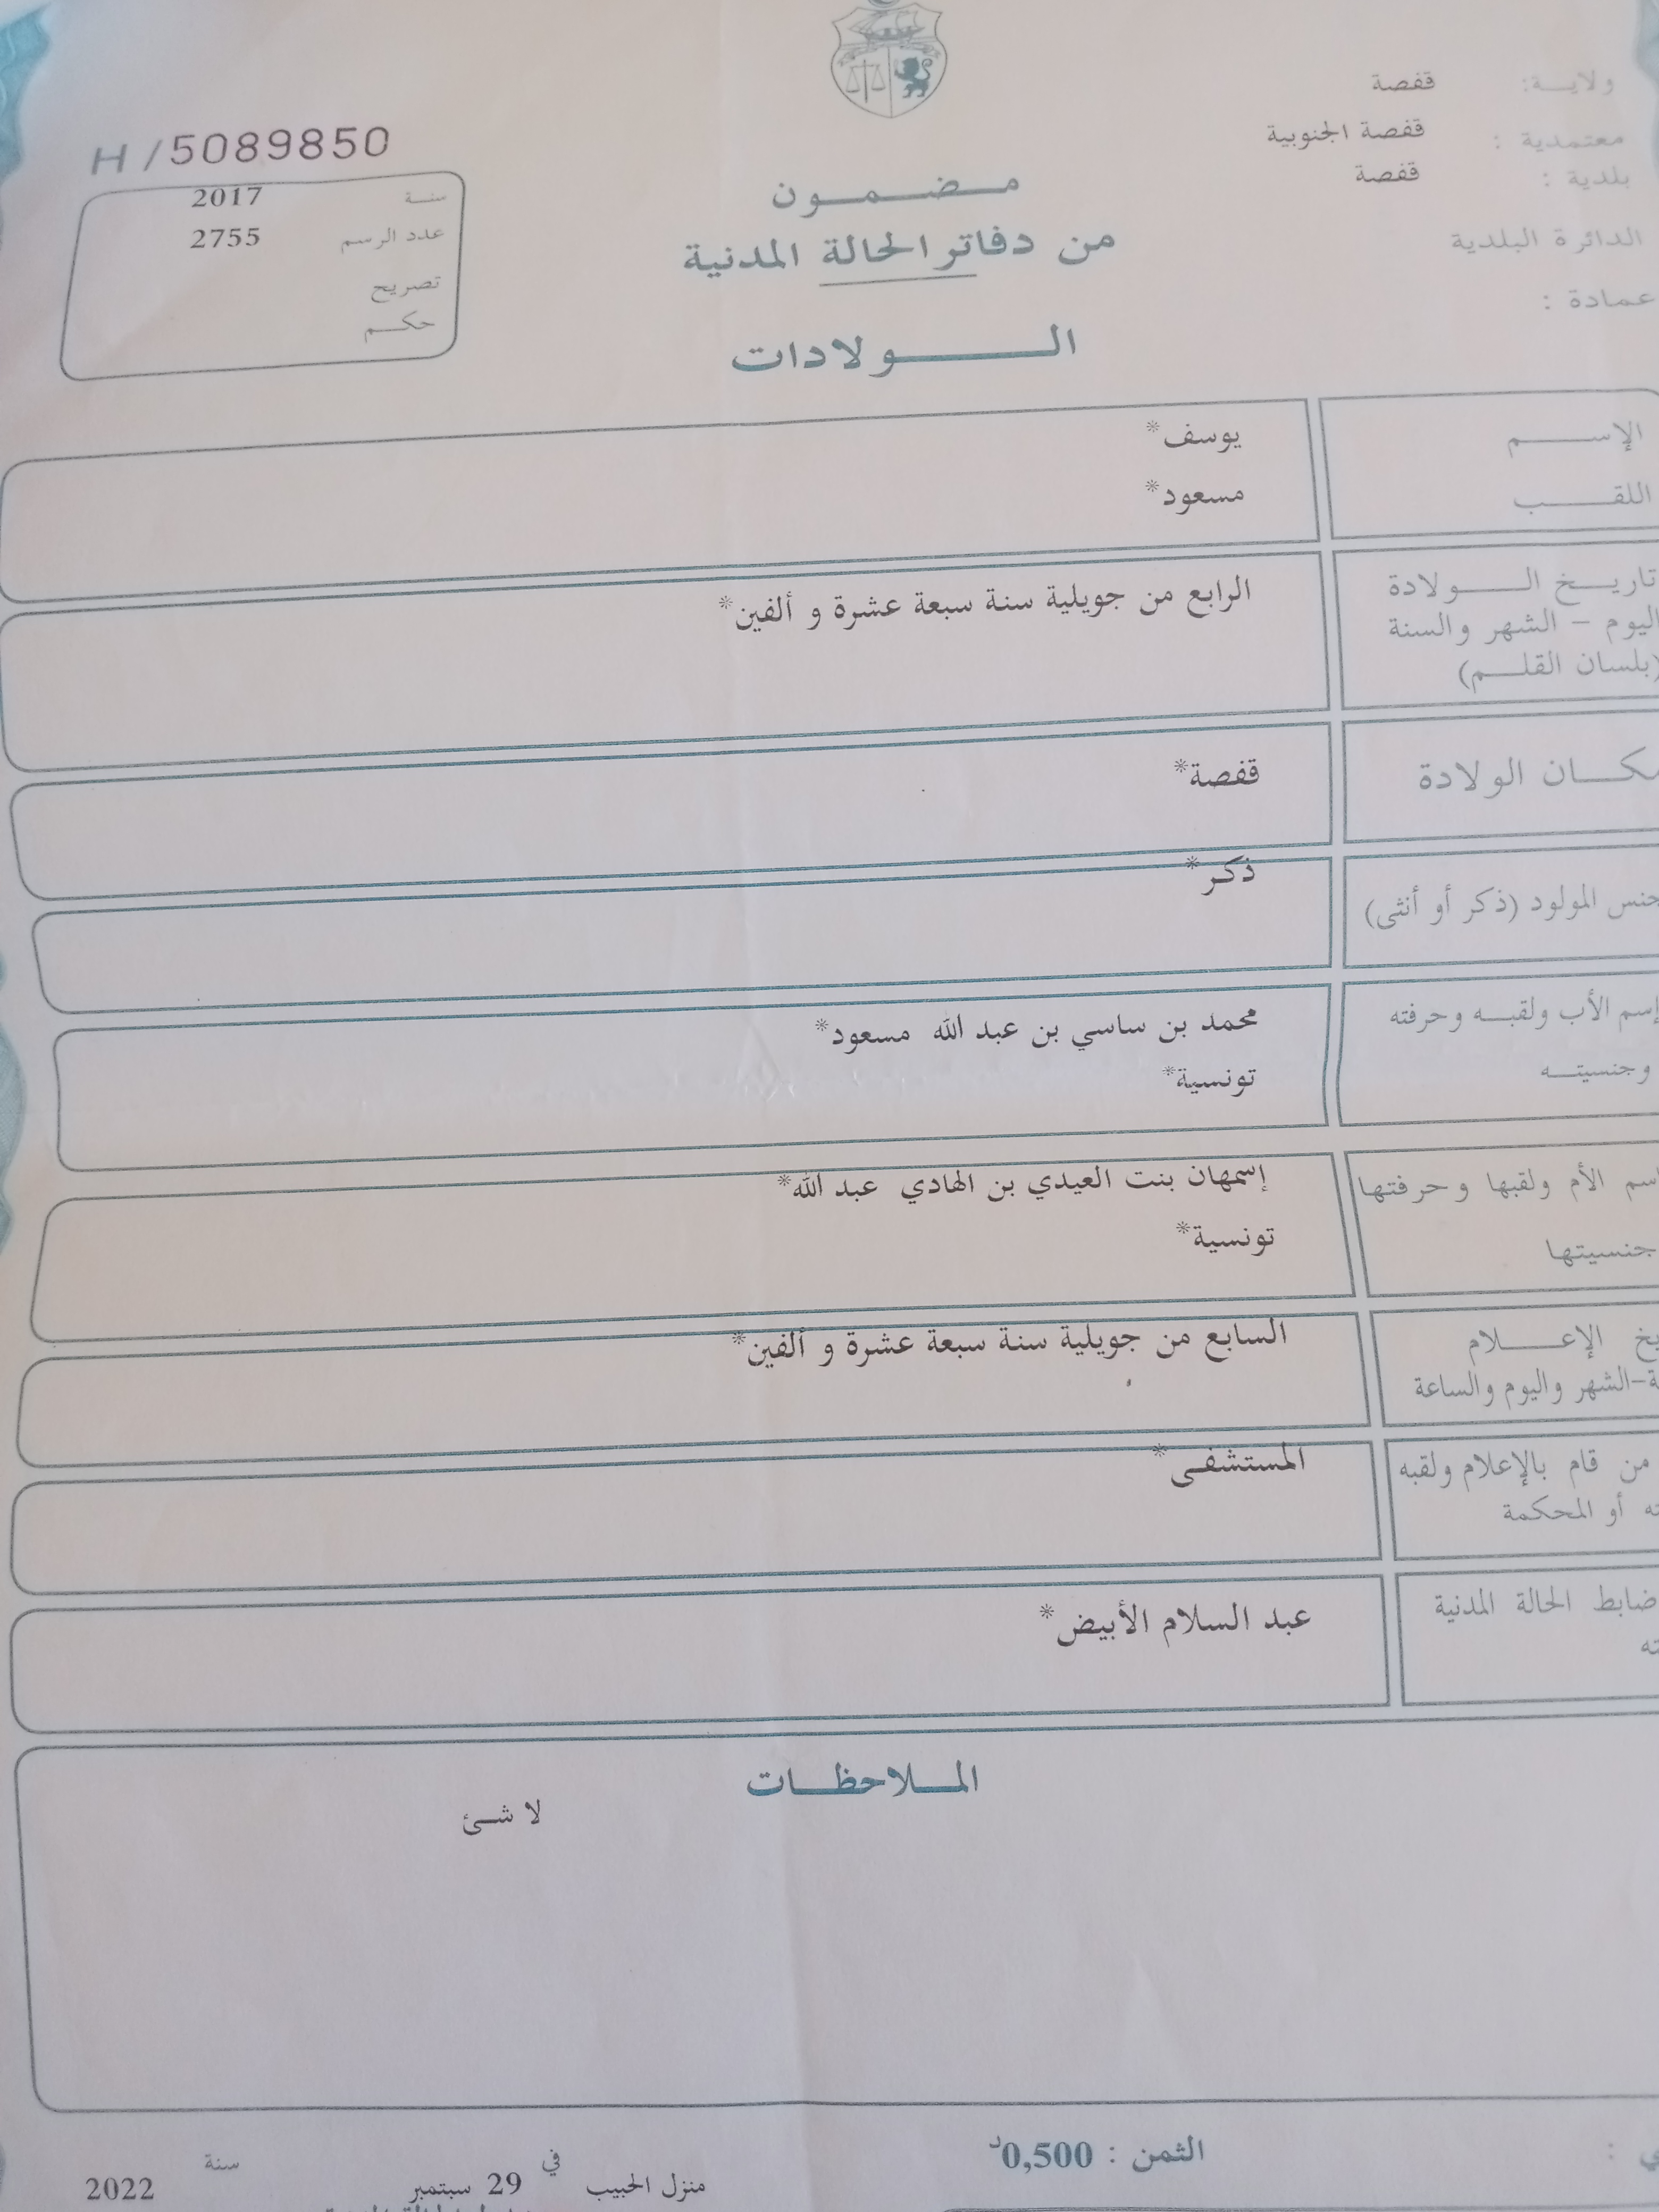 ولاية: قفصة
معتمدية : قفصة الجنوبية
بلدية : قفصة
الدائرة البلدية
عمادة :
H/5089850
سنة 2017
عدد الرسم 2755
تصريح
حكم
مضمون
من دفاتر الحالة المدنية
الولادات
الإسم يوسف*
اللقب مسعود*
تاريخ الولادة الرابع من جويلية سنة سبعة عشرة و ألفين*
اليوم - الشهر والسنة
(بلسان القلم)
مكان الولادة قفصة*
جنس المولود (ذكر أو أنثى) ذكر*
إسم الأب ولقبه وحرفته محمد بن ساسي بن عبد الله مسعود*
وجنسيته تونسية*
إسم الأم ولقبها وحرفتها إسمهان بنت العيدي بن الهادي عبد الله*
جنسيتها تونسية*
الإعلام السابع من جويلية سنة سبعة عشرة و ألفين*
الشهر واليوم والساعة
من قام بالإعلام ولقبه المستشفى*
أو المحكمة
ضابط الحالة المدنية عبد السلام الأبيض*
الملاحظات
لا شئ
الثمن : 0,500د
منزل الحبيب في 29 سبتمبر سنة 2022